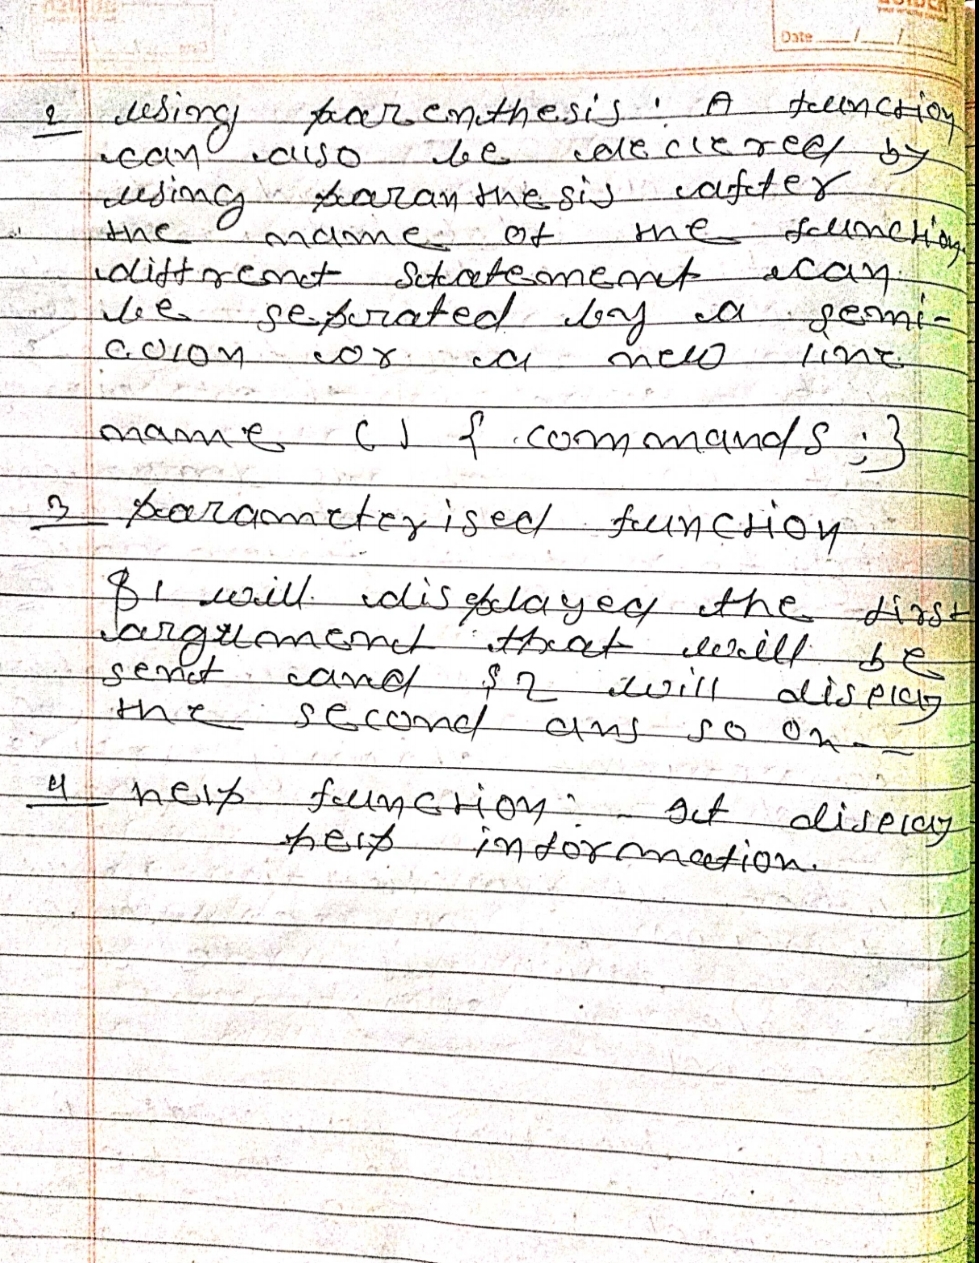 Date __/__/__
2 using parenthesis: A function
can also be declered by
using paranthesis after
the name of the function.
diffrent Statement can
be seprated by a semi-
colon or a new line
name () { commands ; }
3 parameterised function
$1 will displayed the first
argument that will be
sent and $2 will display
the second ans so on --
4 help function: It display
help information.